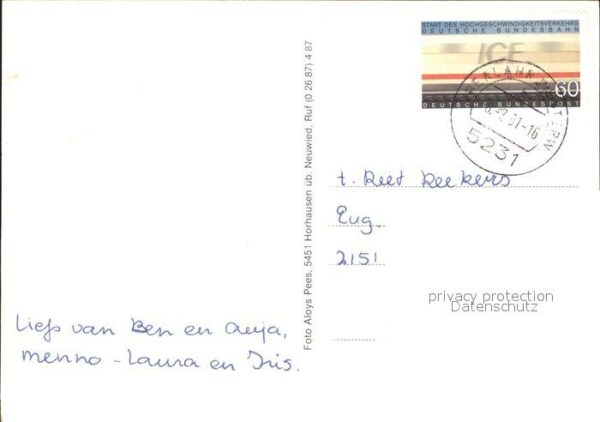 START DES HOCHGESCHWINDIGKEITSVERKEHRS
DEUTSCHE BUNDESBAHN
ICE
60
DEUTSCHE BUNDESPOST
OBERLAHR WESTERW
-7.01-16
5231
Foto Aloys Pees, 5451 Horhausen üb. Neuwied, Ruf (0 26 87) 4 87
t. Reet Reekers
Eug.
2151
privacy protection
Datenschutz
Liefs van Ben en Anja,
menno - Laura en Iris.